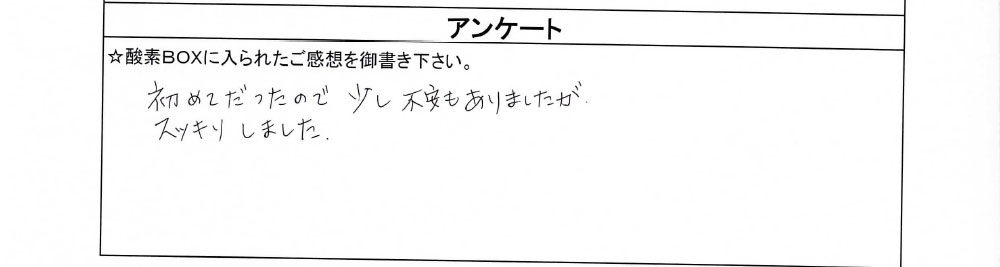 アンケート
☆酸素BOXに入られたご感想を御書き下さい。
初めてだったので 少し不安もありましたが.
スッキリしました.